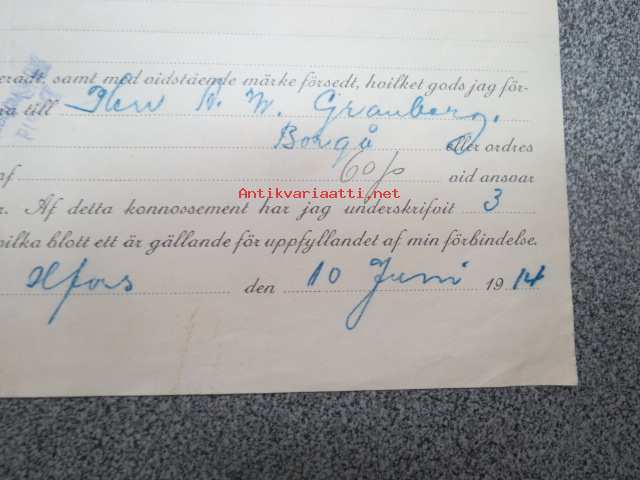 eradt, samt med vidstående märke försedt, hvilket gods jag för-
ra till Herr K. W. Granberg.
Borgå eller ordres
af 60 p vid ansvar
Antikvariaatti.net
r. Af detta konnossement har jag underskrifvit 3
vilka blott ett är gällande för uppfyllandet af min förbindelse.
Hfors den 10 Juni 1914